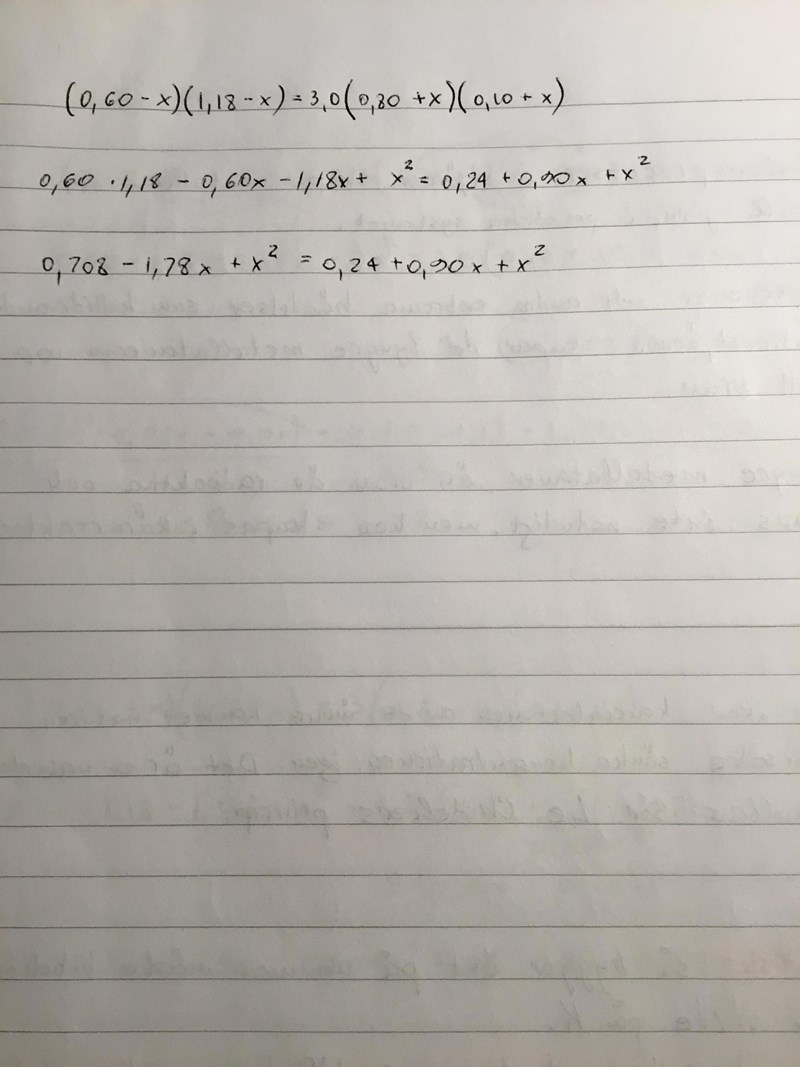 (0,60 - x)(1,18 - x) = 3,0(0,80 + x)(0,10 + x)
0,60 · 1,18 - 0,60x - 1,18x + x² = 0,24 + 0,90x + x²
0,708 - 1,78x + x² = 0,24 + 0,90x + x²